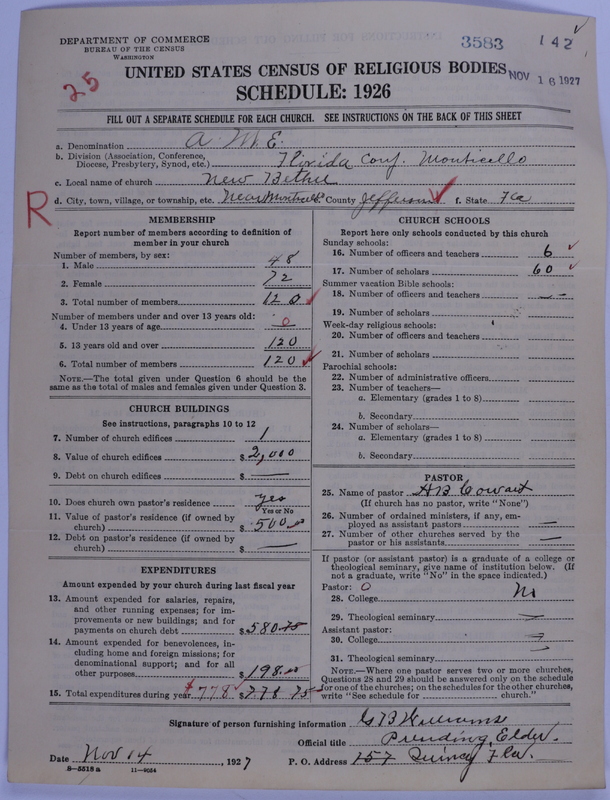 DEPARTMENT OF COMMERCE
BUREAU OF THE CENSUS
WASHINGTON
3583
142
25
NOV 16 1927
UNITED STATES CENSUS OF RELIGIOUS BODIES
SCHEDULE: 1926
FILL OUT A SEPARATE SCHEDULE FOR EACH CHURCH. SEE INSTRUCTIONS ON THE BACK OF THIS SHEET
a. Denomination A. M. E.
b. Division (Association, Conference,
Diocese, Presbytery, Synod, etc.) Florida Conf. Monticello
c. Local name of church New Bethel
R
d. City, town, village, or township, etc. Near Monticello County Jefferson f. State Fla
MEMBERSHIP
Report number of members according to definition of
member in your church
Number of members, by sex:
1. Male 48
2. Female 72
3. Total number of members 120
Number of members under and over 13 years old:
4. Under 13 years of age 0
5. 13 years old and over 120
6. Total number of members 120
NOTE.—The total given under Question 6 should be the
same as the total of males and females given under Question 3.
CHURCH BUILDINGS
See instructions, paragraphs 10 to 12
7. Number of church edifices 1
8. Value of church edifices $ 2,000
9. Debt on church edifices $ —
10. Does church own pastor's residence yes
Yes or No
11. Value of pastor's residence (if owned by
church) $ 500.00
12. Debt on pastor's residence (if owned by
church) $ —
EXPENDITURES
Amount expended by your church during last fiscal year
13. Amount expended for salaries, repairs,
and other running expenses; for im-
provements or new buildings; and for
payments on church debt $ 580.75
14. Amount expended for benevolences, in-
cluding home and foreign missions; for
denominational support; and for all
other purposes $ 198.00
15. Total expenditures during year $778 $ 778 75
CHURCH SCHOOLS
Report here only schools conducted by this church
Sunday schools:
16. Number of officers and teachers 6
17. Number of scholars 60
Summer vacation Bible schools:
18. Number of officers and teachers —
19. Number of scholars
Week-day religious schools:
20. Number of officers and teachers
21. Number of scholars
Parochial schools:
22. Number of administrative officers
23. Number of teachers—
a. Elementary (grades 1 to 8)
b. Secondary
24. Number of scholars—
a. Elementary (grades 1 to 8)
b. Secondary
PASTOR
25. Name of pastor
(If church has no pastor, write "None")
26. Number of ordained ministers, if any, em-
ployed as assistant pastors —
27. Number of other churches served by the
pastor or his assistants —
If pastor (or assistant pastor) is a graduate of a college or
theological seminary, give name of institution below. (If
not a graduate, write "No" in the space indicated.)
Pastor: 0
28. College No
29. Theological seminary —
Assistant pastor:
30. College —
31. Theological seminary —
NOTE.—Where one pastor serves two or more churches,
Questions 28 and 29 should be answered only on the schedule
for one of the churches; on the schedules for the other churches,
write "See schedule for church."
Signature of person furnishing information G B Williams
Official title Presiding Elder.
Date Nov 14, 1927 P. O. Address 157 Quincy Fla.
8—5518 a 11—9034